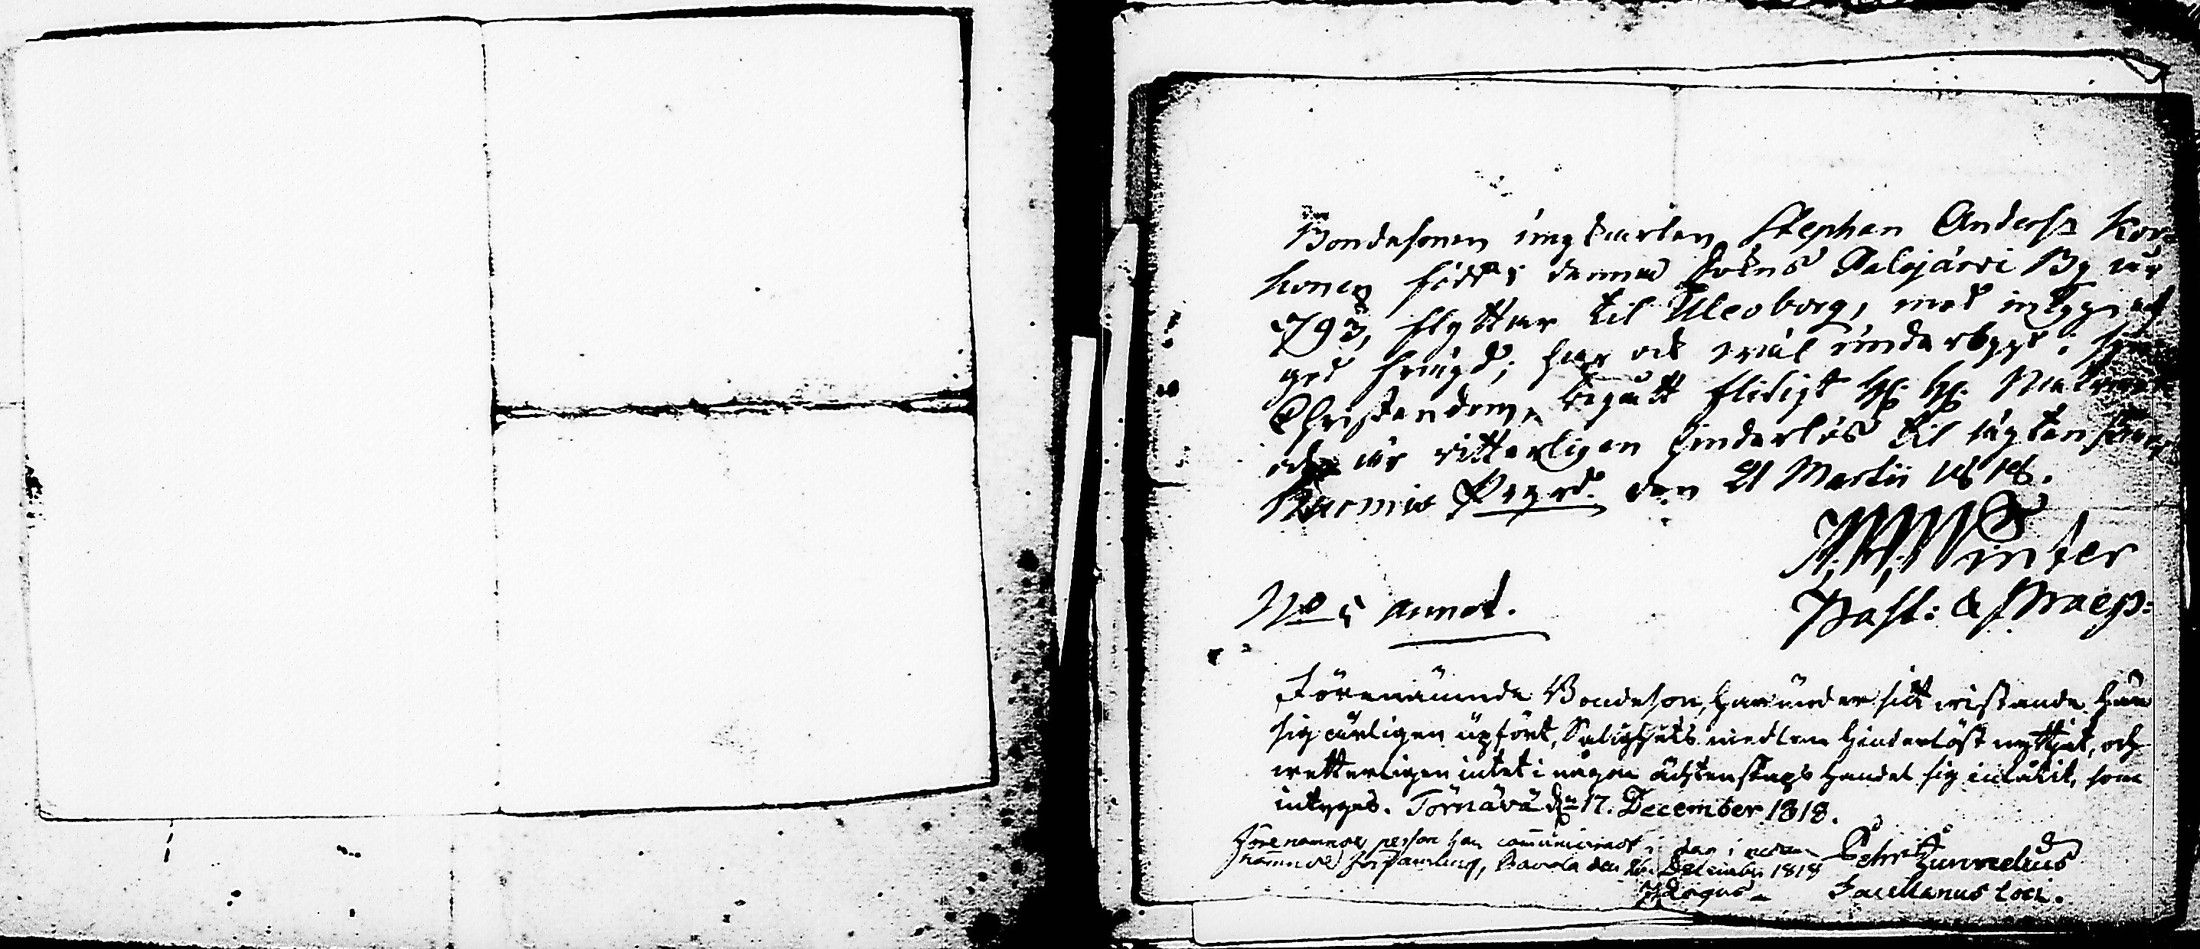 Bondesonen ungkarlen Stephan Anderss. Kor-
honen född i denna Sokns Palojärvi By år
1793, flyttar til Uleoborg, med intyg af
god frägd; har ock wäl underbygd i sin
Christendom, begått flitigt HH. HH. Nattward
och är witterligen hinderlös til ägtenskap.
Prgrd. den 21 Martii 1818.
Winter
Past: & Praep:
No 5 annot.
Förenämnde Bondeson, har under sitt wistande här
sig ärligen upfört, Salighets medlen hinderlöst nyttjat, och
wetterligen intet i någon ächtenskaps handel sig inlåtit, som
intygas. Törnävä dn 17. December 1818.
Förenämnde person har communicerat i dag i
församling, Pavola den December 1818
Petr.
Sacellanus loci.